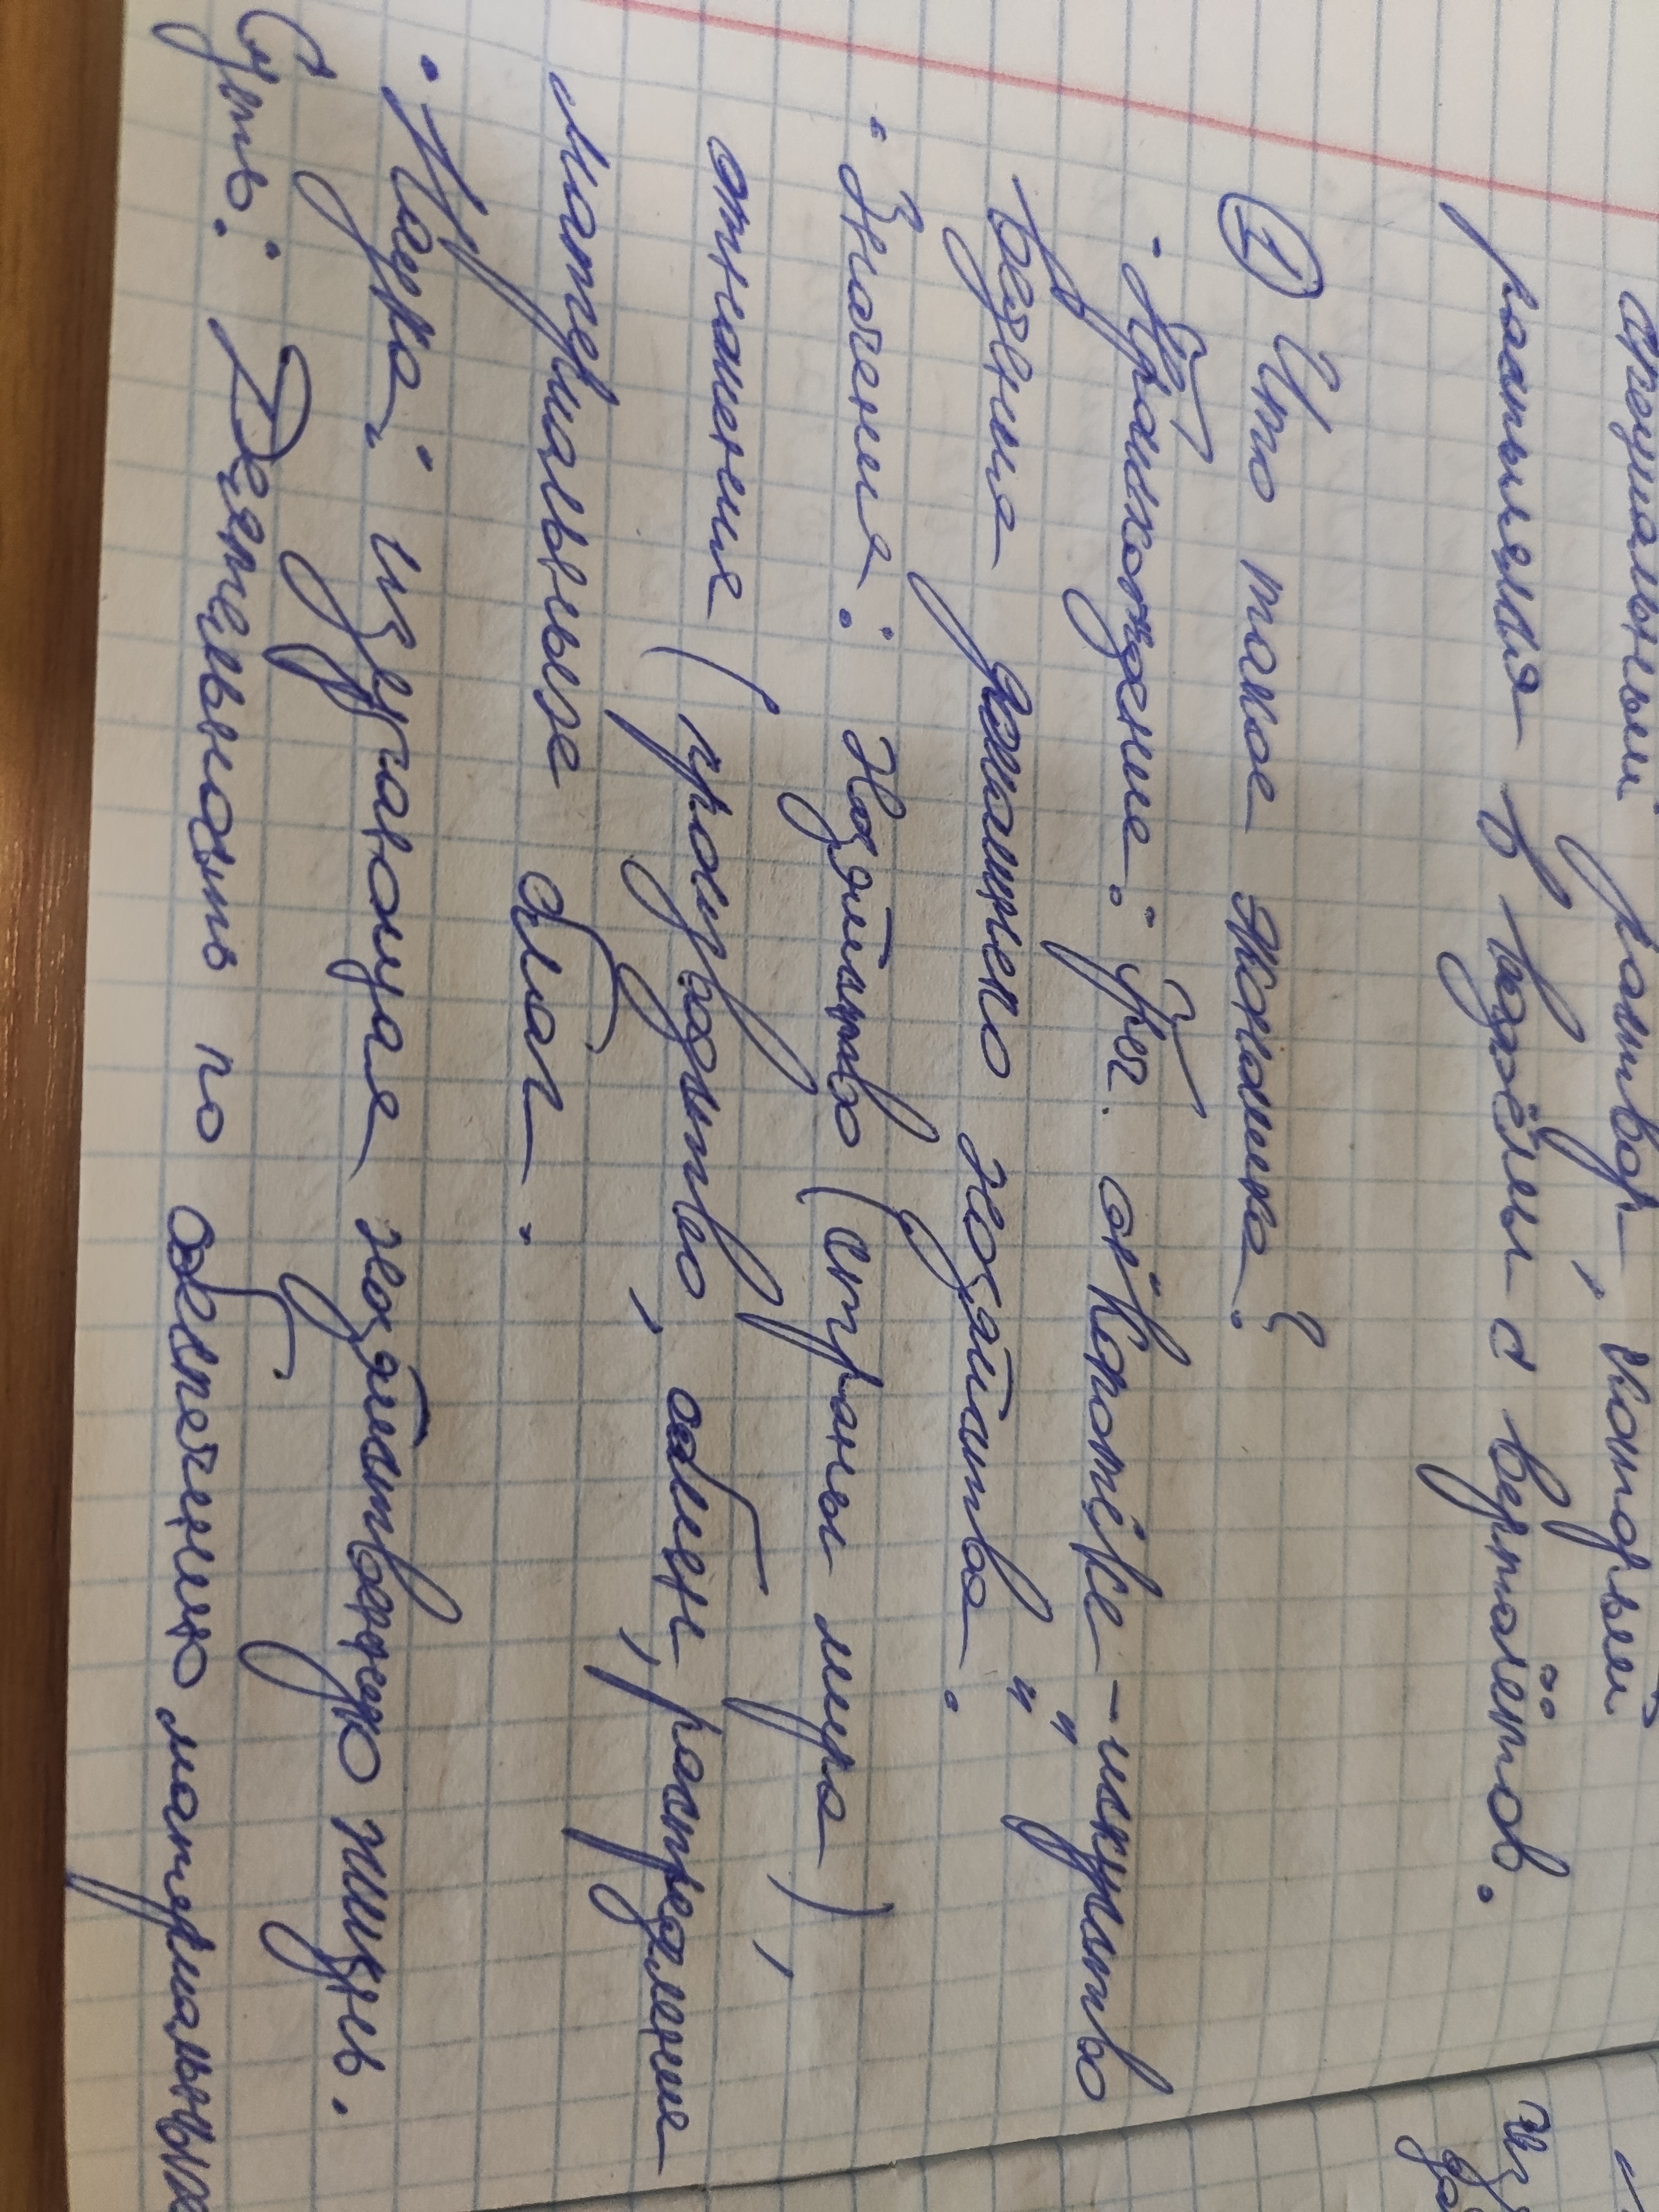 специальный раствор, который
распыляли в водоёмы с вертолётов.
① Что такое экономика?
· Происхождение: гр. ойкономике - искусство
ведения домашнего хозяйства.
· Значения: Хозяйство (страны мира),
отношения (производство, обмен, распределение
материальных благ.
· Наука, изучающая хозяйственную жизнь.
Суть: Деятельность по обеспечению материальных